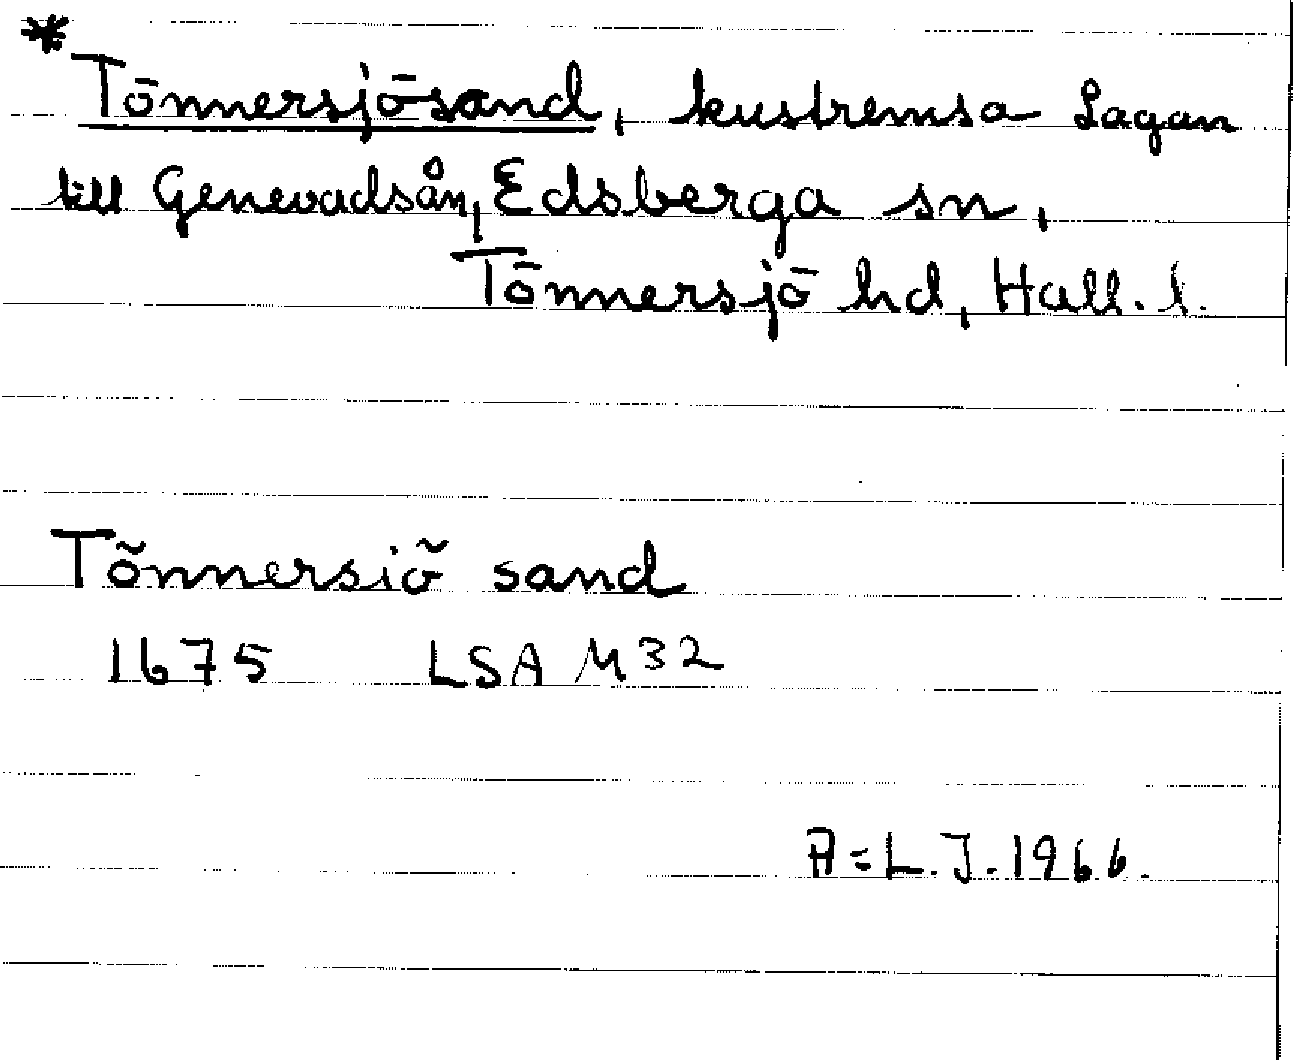 *
Tönnersjösand, kustremsa Lagan
till Genevadsån, Edsberga sn,
Tönnersjö hd, Hall. l.
Tönnersiö sand
1675 LSA M32
A=L.J. 1966.